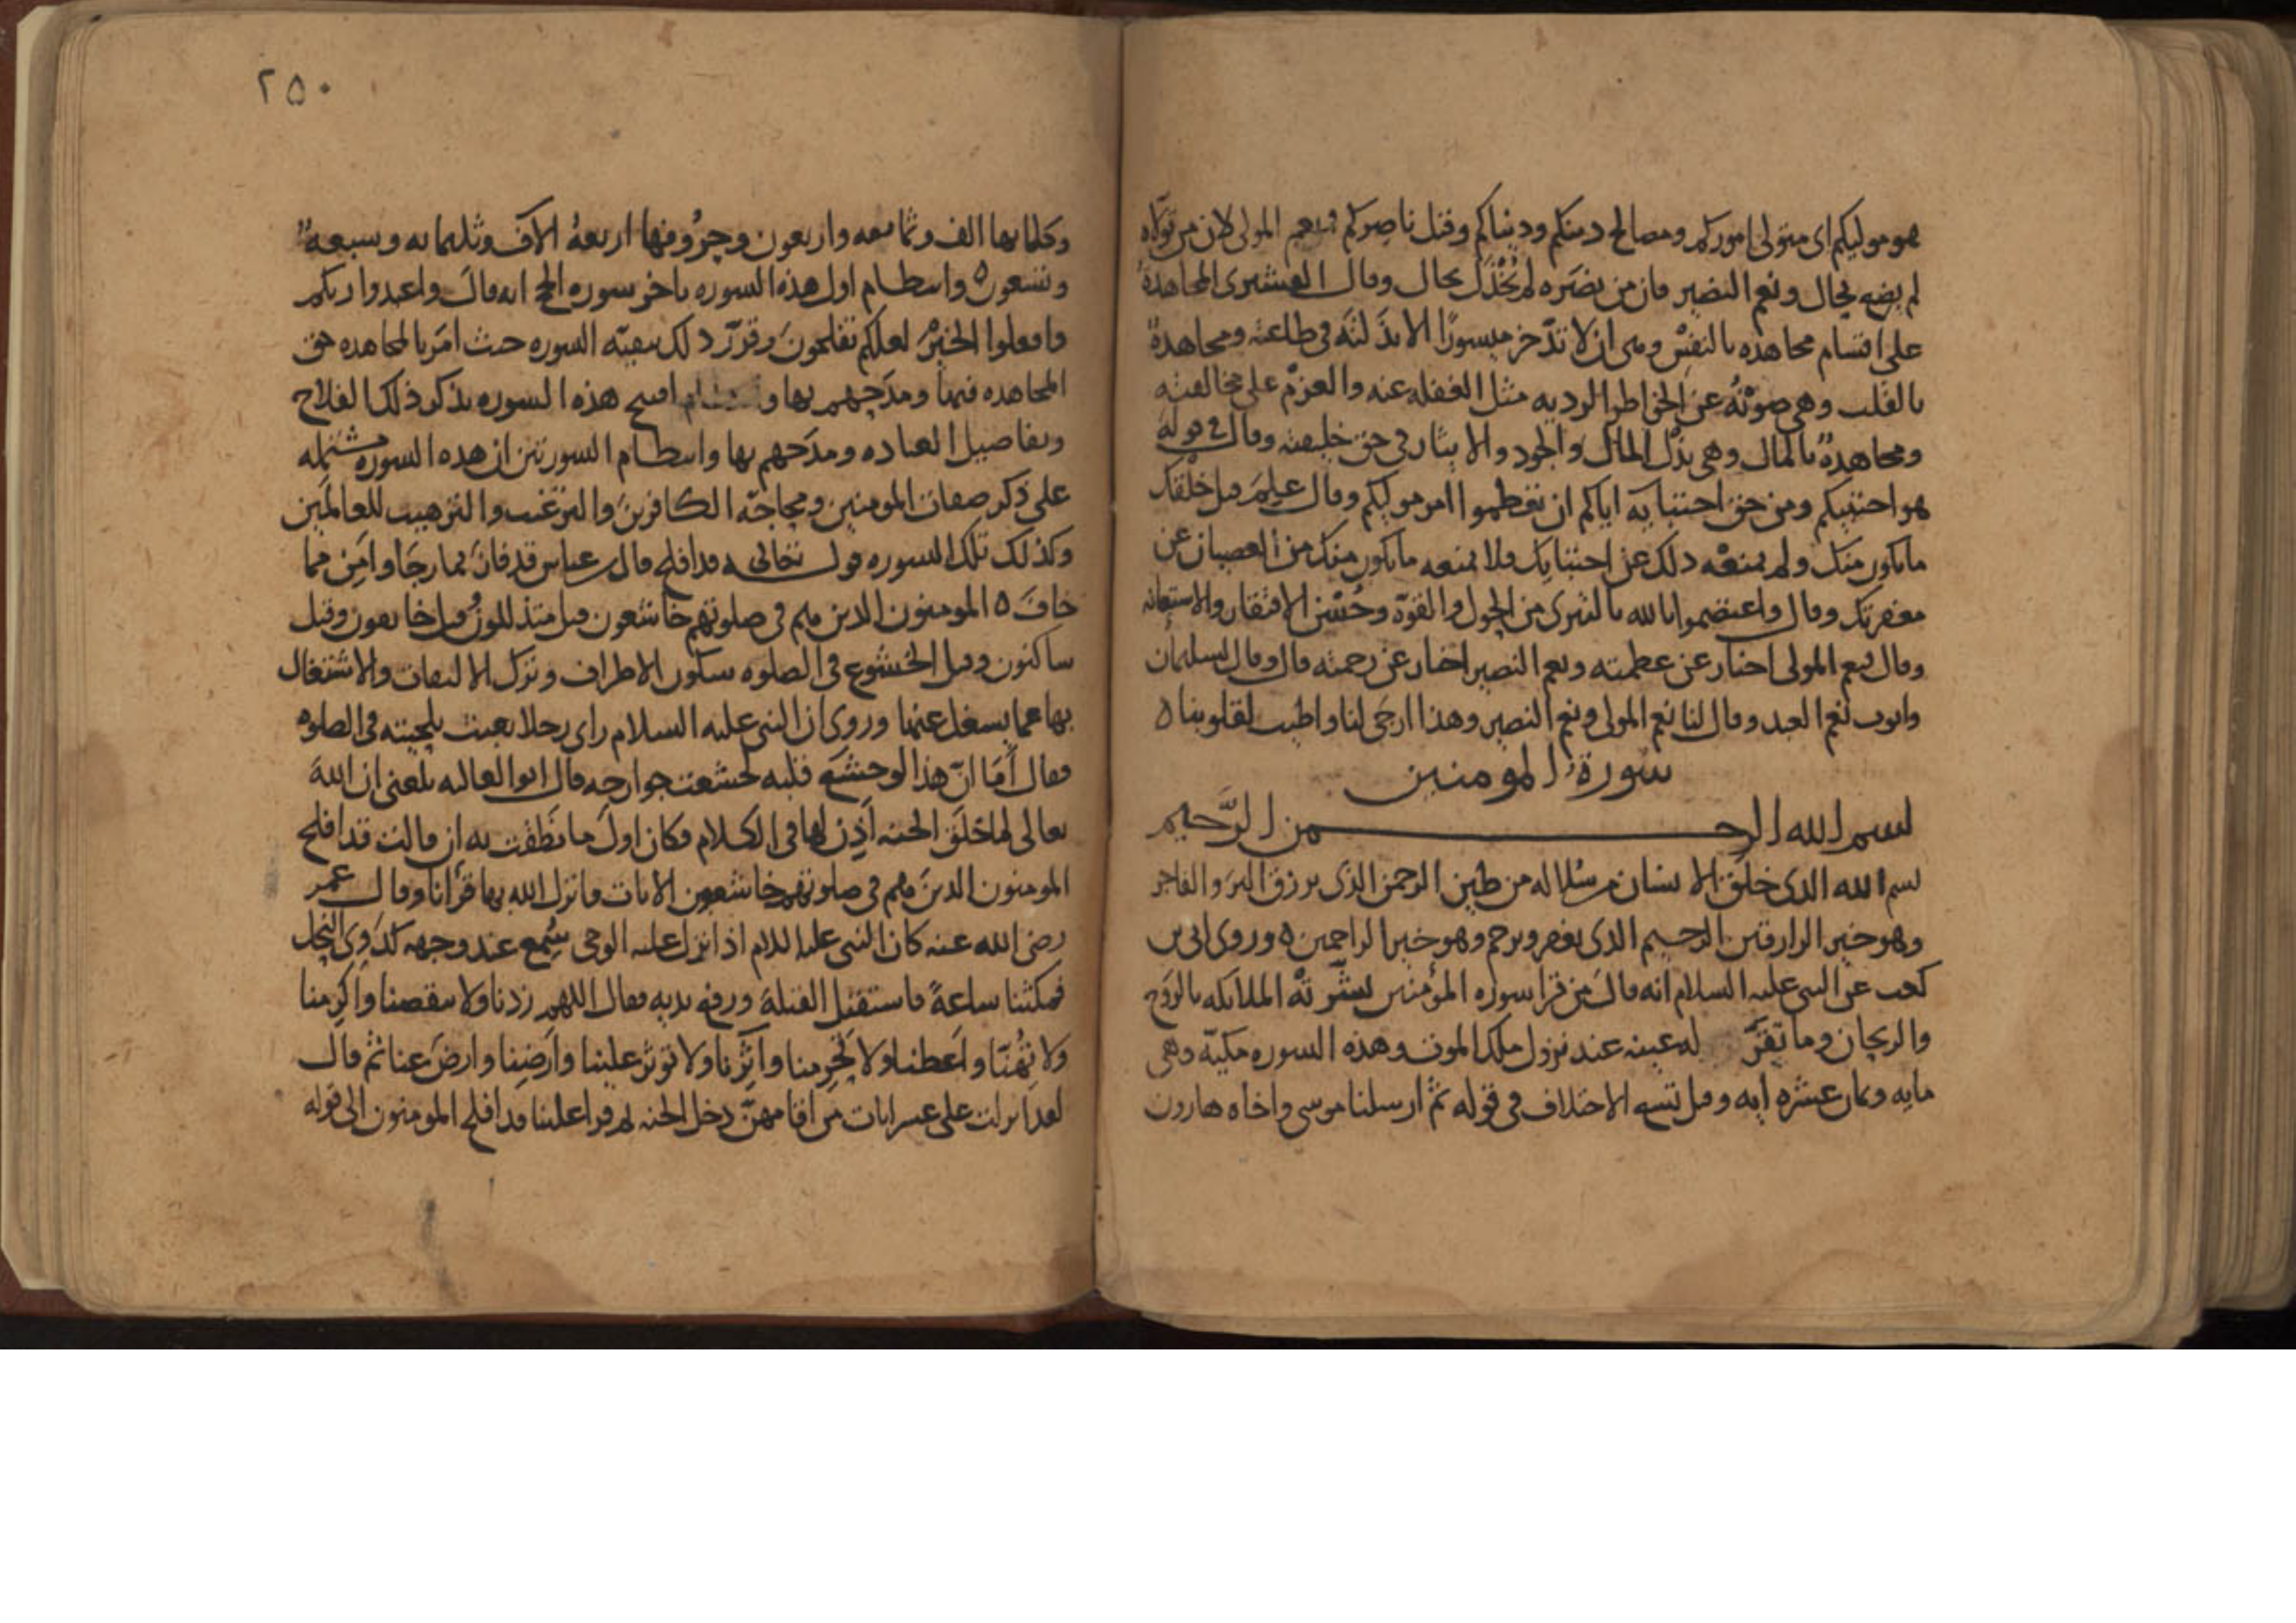 هو موليكم اى متولى اموركم ومصالح دينكم ودنياكم وقيل ناصركم فنعم المولى لان من تولاه
لم يضع بحال ونعم النصير فان من نصره لم يخذل بحال وقال القشيرى المجاهدة
على اقسام مجاهده بالنفس وهى ان لا تدخر ميسورا الا بذلته فى طاعته ومجاهدة
بالقلب وهى صونه عن الخواطر الرديه مثل الغفله عنه والعزم على مخالفته
ومجاهدة بالمال وهى بذل المال والجود والايثار فى حق خليقته وقال فى قوله
هو اجتبيكم ومن حق اجتبايه اياكم ان تعظموا امر موليكم وقال علم قبل خلقك
ما يكون منك ولم يمنعه ذلك عن اجتبايك فلا يمنعه ما يكون منك من العصيان عن
مغفرتك وقال واعتصموا بالله بالتبرى من الحول والقوة وحسن الافتقار والاستعانه
وقال نعم المولى اخبار عن عظمته ونعم النصير اخبار عن رحمته قال وقال لسليمان
وايوب نعم العبد وقال لنا نعم المولى ونعم النصير وهذا ارجى لنا واطيب لقلوبنا ه
سورة المومنين
بسم الله الرحمن الرحيم
بسم الله الذى خلق الانسان من سلاله من طين الرحمن الذى يرزق البر والفاجر
وهو خير الرازقين الرحيم الذى يغفر ويرحم وهو خير الراحمين ه وروى ابى بن
كعب عن النبى عليه السلام انه قال من قرا سوره المؤمنين بشرته الملايكه بالروح
والريحان وما تقر له عينه عند نزول ملك الموت وهذه السوره مكية وهى
مايه وثمان عشره ايه وقيل تسع الاختلاف فى قوله ثم ارسلنا موسى واخاه هارون
٢٥٠
وكلماتها الف وثمانمعه واربعون وحروفها اربعة الاف وثلثمايه وسبعة
وتسعون ه وانتظام اول هذه السوره باخر سوره الحج انه قال واعبدوا ربكم
وافعلوا الخير لعلكم تفلحون وقرر ذلك ببقية السوره حيث امر بالمجاهده حق
المجاهده فيها ومدحهم بها وافتتح هذه السوره بذكر ذلك الفلاح
وتفاصيل العباده ومدحهم بها وانتظام السورتين ان هذه السوره مشتمله
على ذكر صفات المومنين ومحاجة الكافرين والترغيب والترهيب للعالمين
وكذلك تلك السوره قوله تعالى قد افلح قال ابن عباس قد فاز بما رجا وامن مما
خاف ه المومنون الذين هم فى صلوتهم خاشعون قيل متذللون وقيل خايفون وقيل
ساكنون وقيل الخشوع فى الصلوه سكون الاطراف وترك الالتفات والاشتغال
بها عما يشغل عنها وروى ان النبى عليه السلام راى رجلا يعبث بلحيته فى الصلوه
فقال أما انّ هذا لو خشع قلبه لخشعت جوارحه قال ابو العاليه بلغنى ان الله
تعالى لما خلق الجنه اذن لها فى الكلام فكان اول ما نطقت به ان قالت قد افلح
المومنون الذين هم فى صلوتهم خاشعون الايات فانزل الله بها قرأنا وقال عمر
رضى الله عنه كان النبى عليه السلام اذا نزل عليه الوحى سُمع عند وجهه كدوى النحل
فمكثنا ساعة فاستقبل القبلة ورفع يديه فقال اللهم زدنا ولا تنقصنا واكرمنا
ولا تهنّا واعطنا ولا تحرمنا وآثرنا ولا توثر علينا وارضنا وارض عنا ثم قال
لقد انزلت على عشر ايات من اقامهن دخل الجنه ثم قرا علينا قد افلح المومنون الى قوله